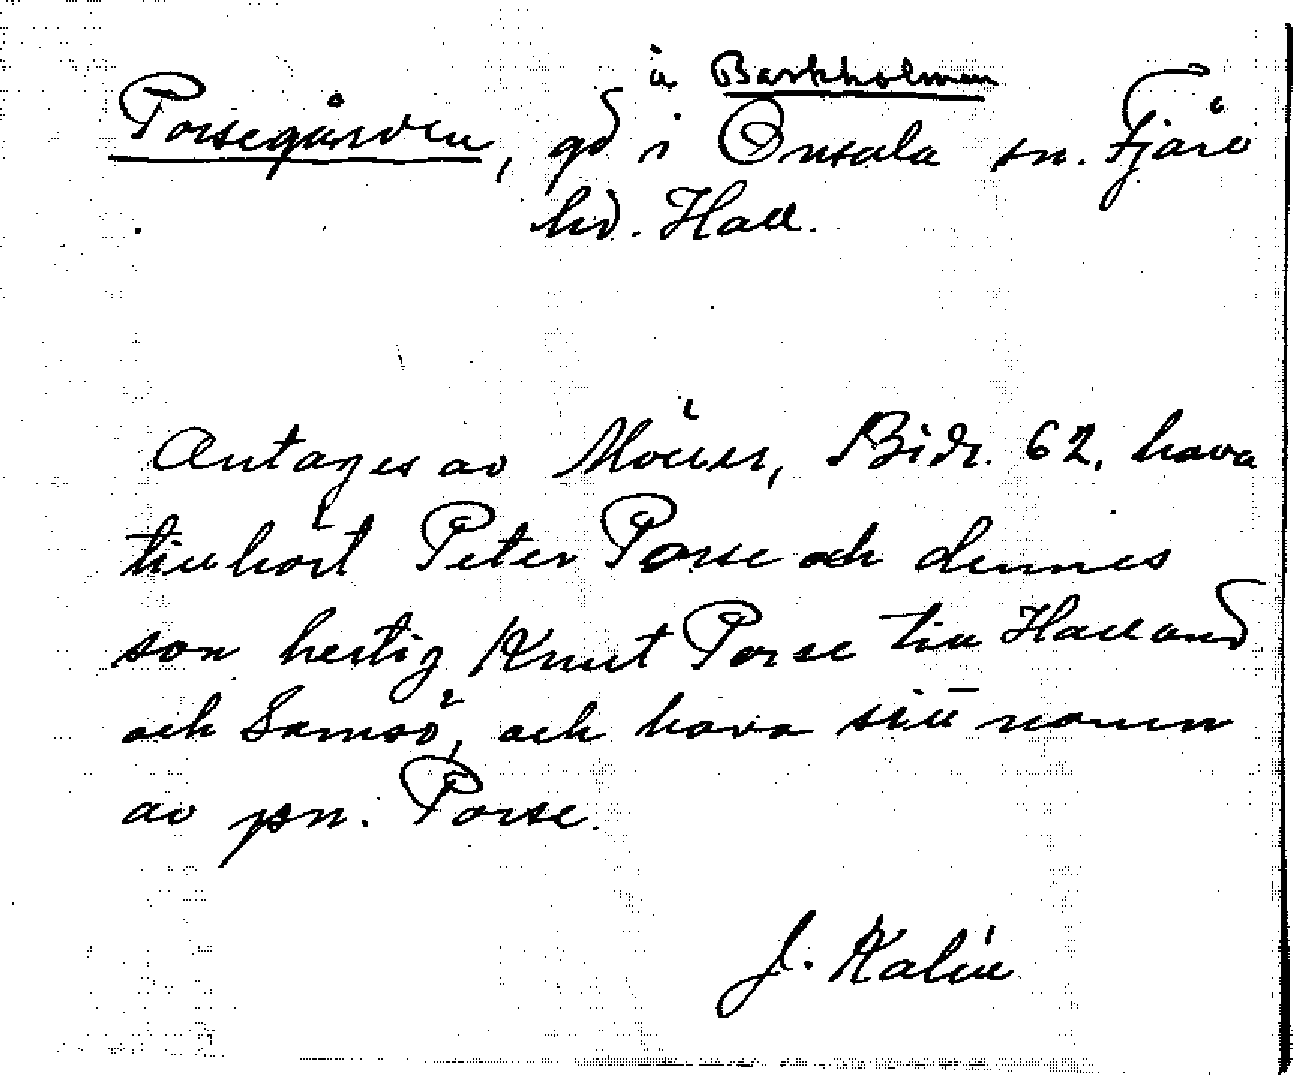 å Barkholmen
Porsegården, gd i Onsala sn. Fjäre
hd. Hall.
Antages av Möller, Bidr. 62, hava
tillhört Peter Porse och dennes
son hertig Knut Porse till Halland
och Samsö, och hava sitt namn
av pn. Porse.
J. Kalén